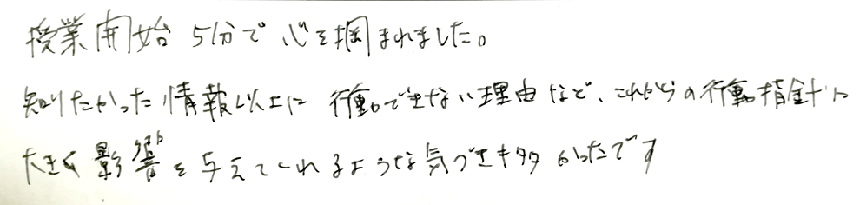 授業開始5分で心を掴まれました。
知りたかった情報以上に行動できない理由など、これからの行動指針に
大きく影響を与えてくれるような気づきが多かったです